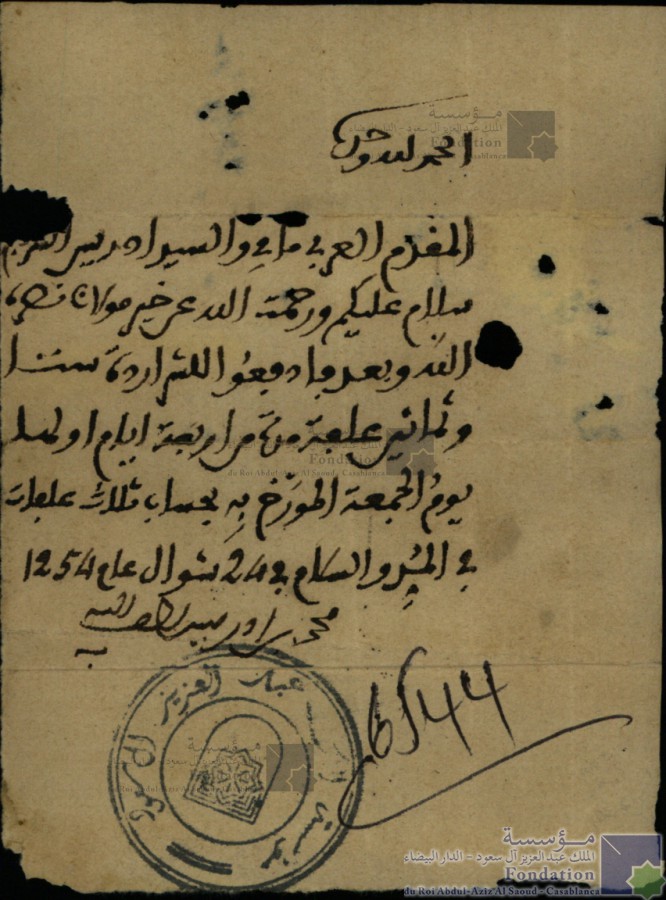 الحمد لله وحده
المقدم العربي ماني والسيد ادريس
سلام عليكم ورحمت الله عن خير مولانا نصره
الله وبعد فادفعوا
وثمانين علفة من اربعة ايام اولها
يوم الجمعة المورّخ بِهِ بحساب ثلاث علفات
في والسلام في 24 شوال عام 1254
محمد لطف الله به
6544
مؤسسة الملك عبد العزيز آل سعود
مؤسسة
الملك عبد العزيز آل سعود - الدار البيضاء
Fondation
du Roi Abdul-Aziz Al Saoud - Casablanca